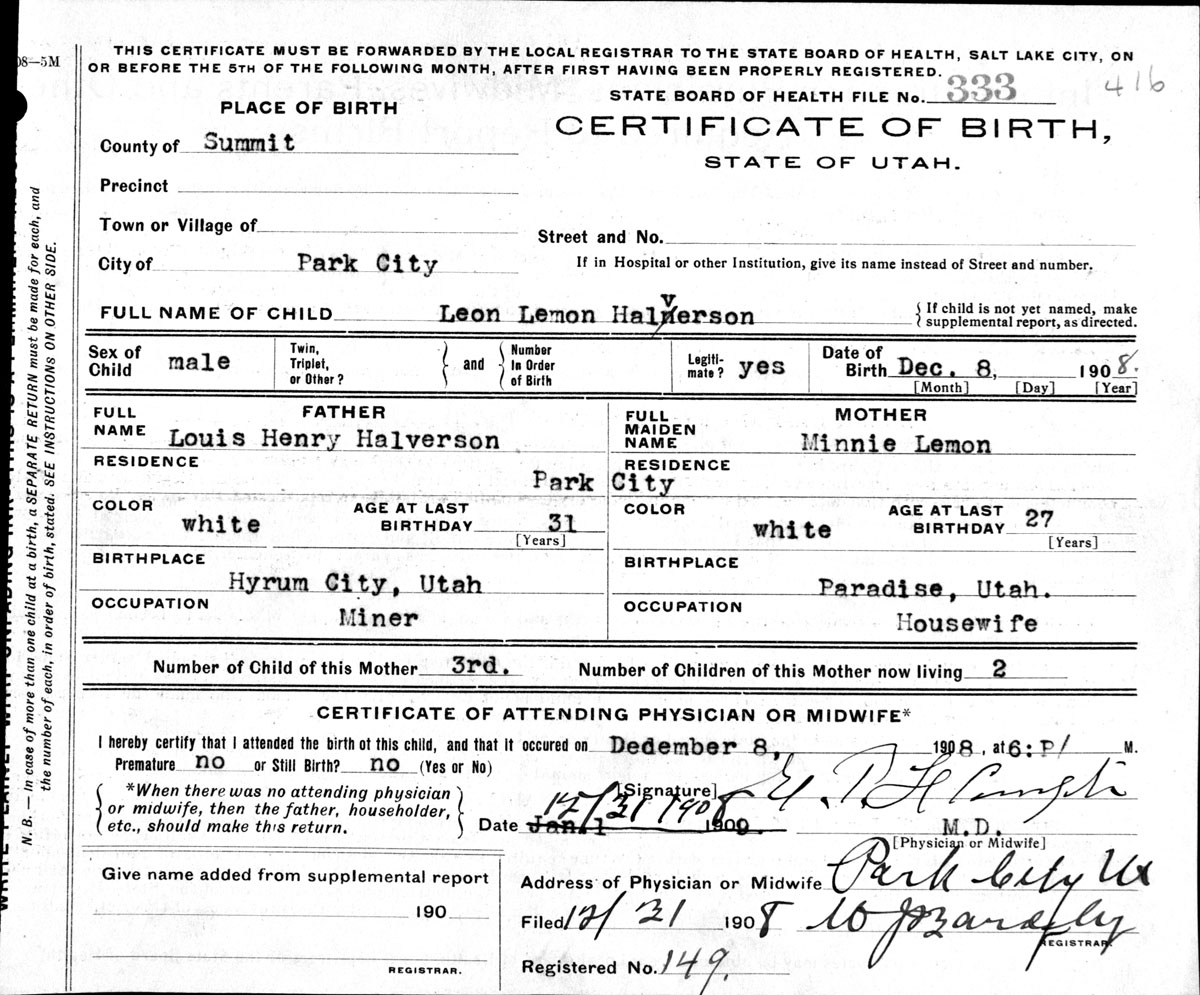 08—5M
THIS CERTIFICATE MUST BE FORWARDED BY THE LOCAL REGISTRAR TO THE STATE BOARD OF HEALTH, SALT LAKE CITY, ON
OR BEFORE THE 5TH OF THE FOLLOWING MONTH, AFTER FIRST HAVING BEEN PROPERLY REGISTERED.
STATE BOARD OF HEALTH FILE No. 333 416
PLACE OF BIRTH
CERTIFICATE OF BIRTH,
STATE OF UTAH.
County of Summit
Precinct
Town or Village of
Street and No.
City of Park City
If in Hospital or other Institution, give its name instead of Street and number.
FULL NAME OF CHILD Leon Lemon Halverson
{ If child is not yet named, make
supplemental report, as directed.
Sex of Child male
Twin, Triplet, or Other? } and { Number In Order of Birth
Legiti- mate? yes
Date of Birth Dec. 8, 1908.
[Month] [Day] [Year]
FATHER
FULL NAME Louis Henry Halverson
MOTHER
FULL MAIDEN NAME Minnie Lemon
RESIDENCE RESIDENCE
Park City
COLOR white AGE AT LAST BIRTHDAY 31 [Years]
COLOR white AGE AT LAST BIRTHDAY 27 [Years]
BIRTHPLACE Hyrum City, Utah
BIRTHPLACE Paradise, Utah.
OCCUPATION Miner
OCCUPATION Housewife
Number of Child of this Mother 3rd. Number of Children of this Mother now living 2
CERTIFICATE OF ATTENDING PHYSICIAN OR MIDWIFE*
I hereby certify that I attended the birth of this child, and that it occured on Dedember 8, 1908, at 6: P M.
Premature no or Still Birth? no (Yes or No)
*When there was no attending physician
or midwife, then the father, householder,
etc., should make this return.
[Signature]
12/31/1908
Date Jan. 1 1909
M.D.
[Physician or Midwife]
Give name added from supplemental report
190
REGISTRAR.
Address of Physician or Midwife Park City Ut
Filed 12/31 1908
REGISTRAR.
Registered No. 149.
N. B.— In case of more than one child at a birth, a SEPARATE RETURN must be made for each, and
the number of each, in order of birth, stated. SEE INSTRUCTIONS ON OTHER SIDE.